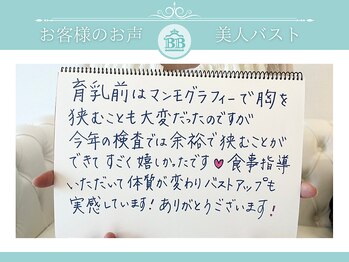 お客様のお声
BB
美人バスト
育乳前はマンモグラフィーで胸を
狭むことも大変だったのですが
今年の検査では余裕で狭むことが
できてすごく嬉しかったです♥食事指導
いただいて体質が変わりバストアップも
実感しています!ありがとうございます!